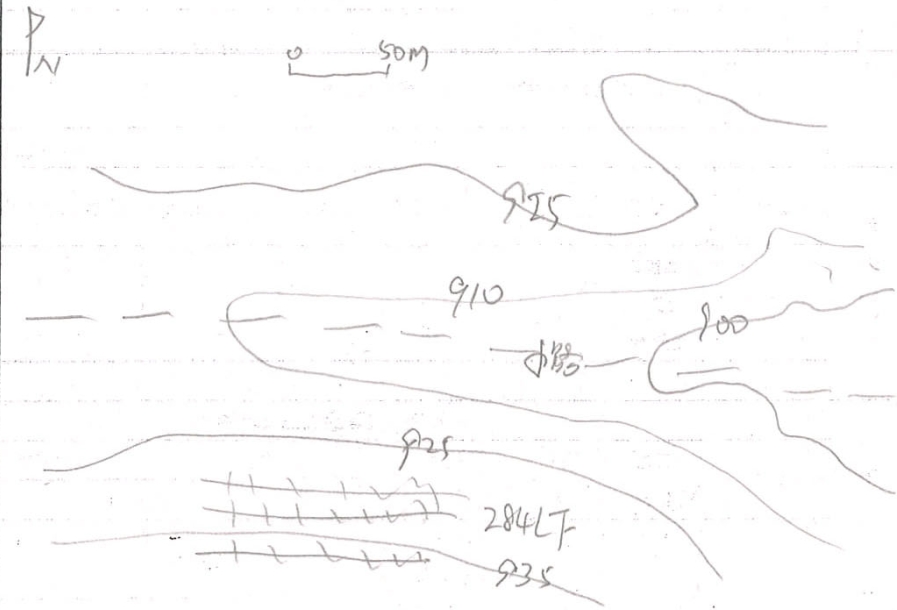 N
0 50M
925
910
900
小路
925
284LF
935